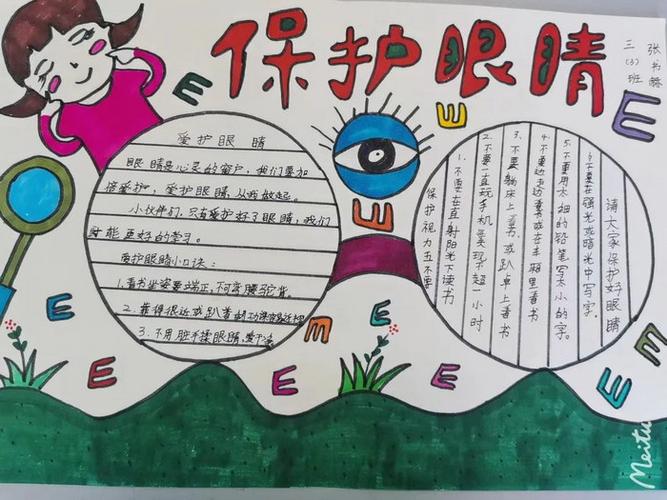 保护眼睛
三(3)班
张书
爱护眼睛
眼睛是心灵的窗户，我们要加
倍爱护，爱护眼睛，从我做起。
小伙伴们，只有爱护好了眼睛，我们
才能更好的学习。
爱护眼睛小口诀：
1.看书坐姿要端正，不弯腰驼背。
2.靠得很近或趴着
3.不用脏手揉眼睛，
保护视力五不要
1.不要在直射阳光下读书
2.不要一直玩手机
不超一小时
3.不要躺床上看书或趴桌上看书
4.不要边走边看书或在车厢里看书
5.不要用太细的铅笔写太小的字。
6.不要在强光或暗光中写字。
请大家保护好眼睛
E
E
E
E
E
E
E
E
E
E
E
E
E
Meitu